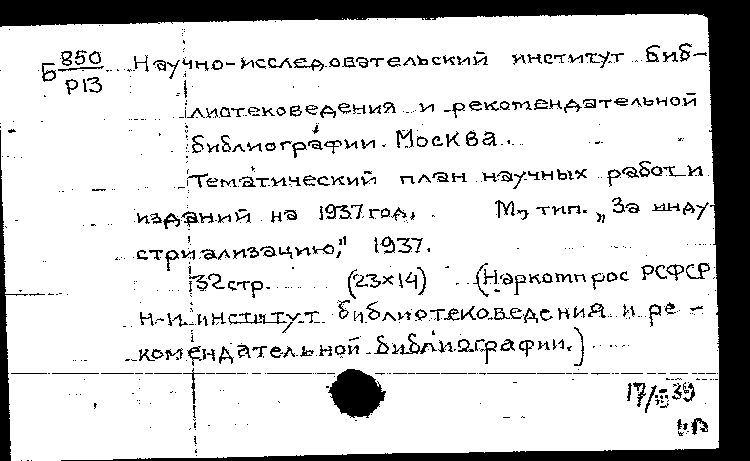 Б 850
Р13
Научно-исследовательский институт биб-
лиотековедения и рекомендательной
библиографии. Москва.
Тематический план научных работ и
изданий на 1937 год. М., тип. „За инду
стриализацию," 1937.
32 стр. (23×14) (Наркомпрос РСФСР
н-и институт библиотековедения и ре-
комендательной библиографии.)
17/III 39